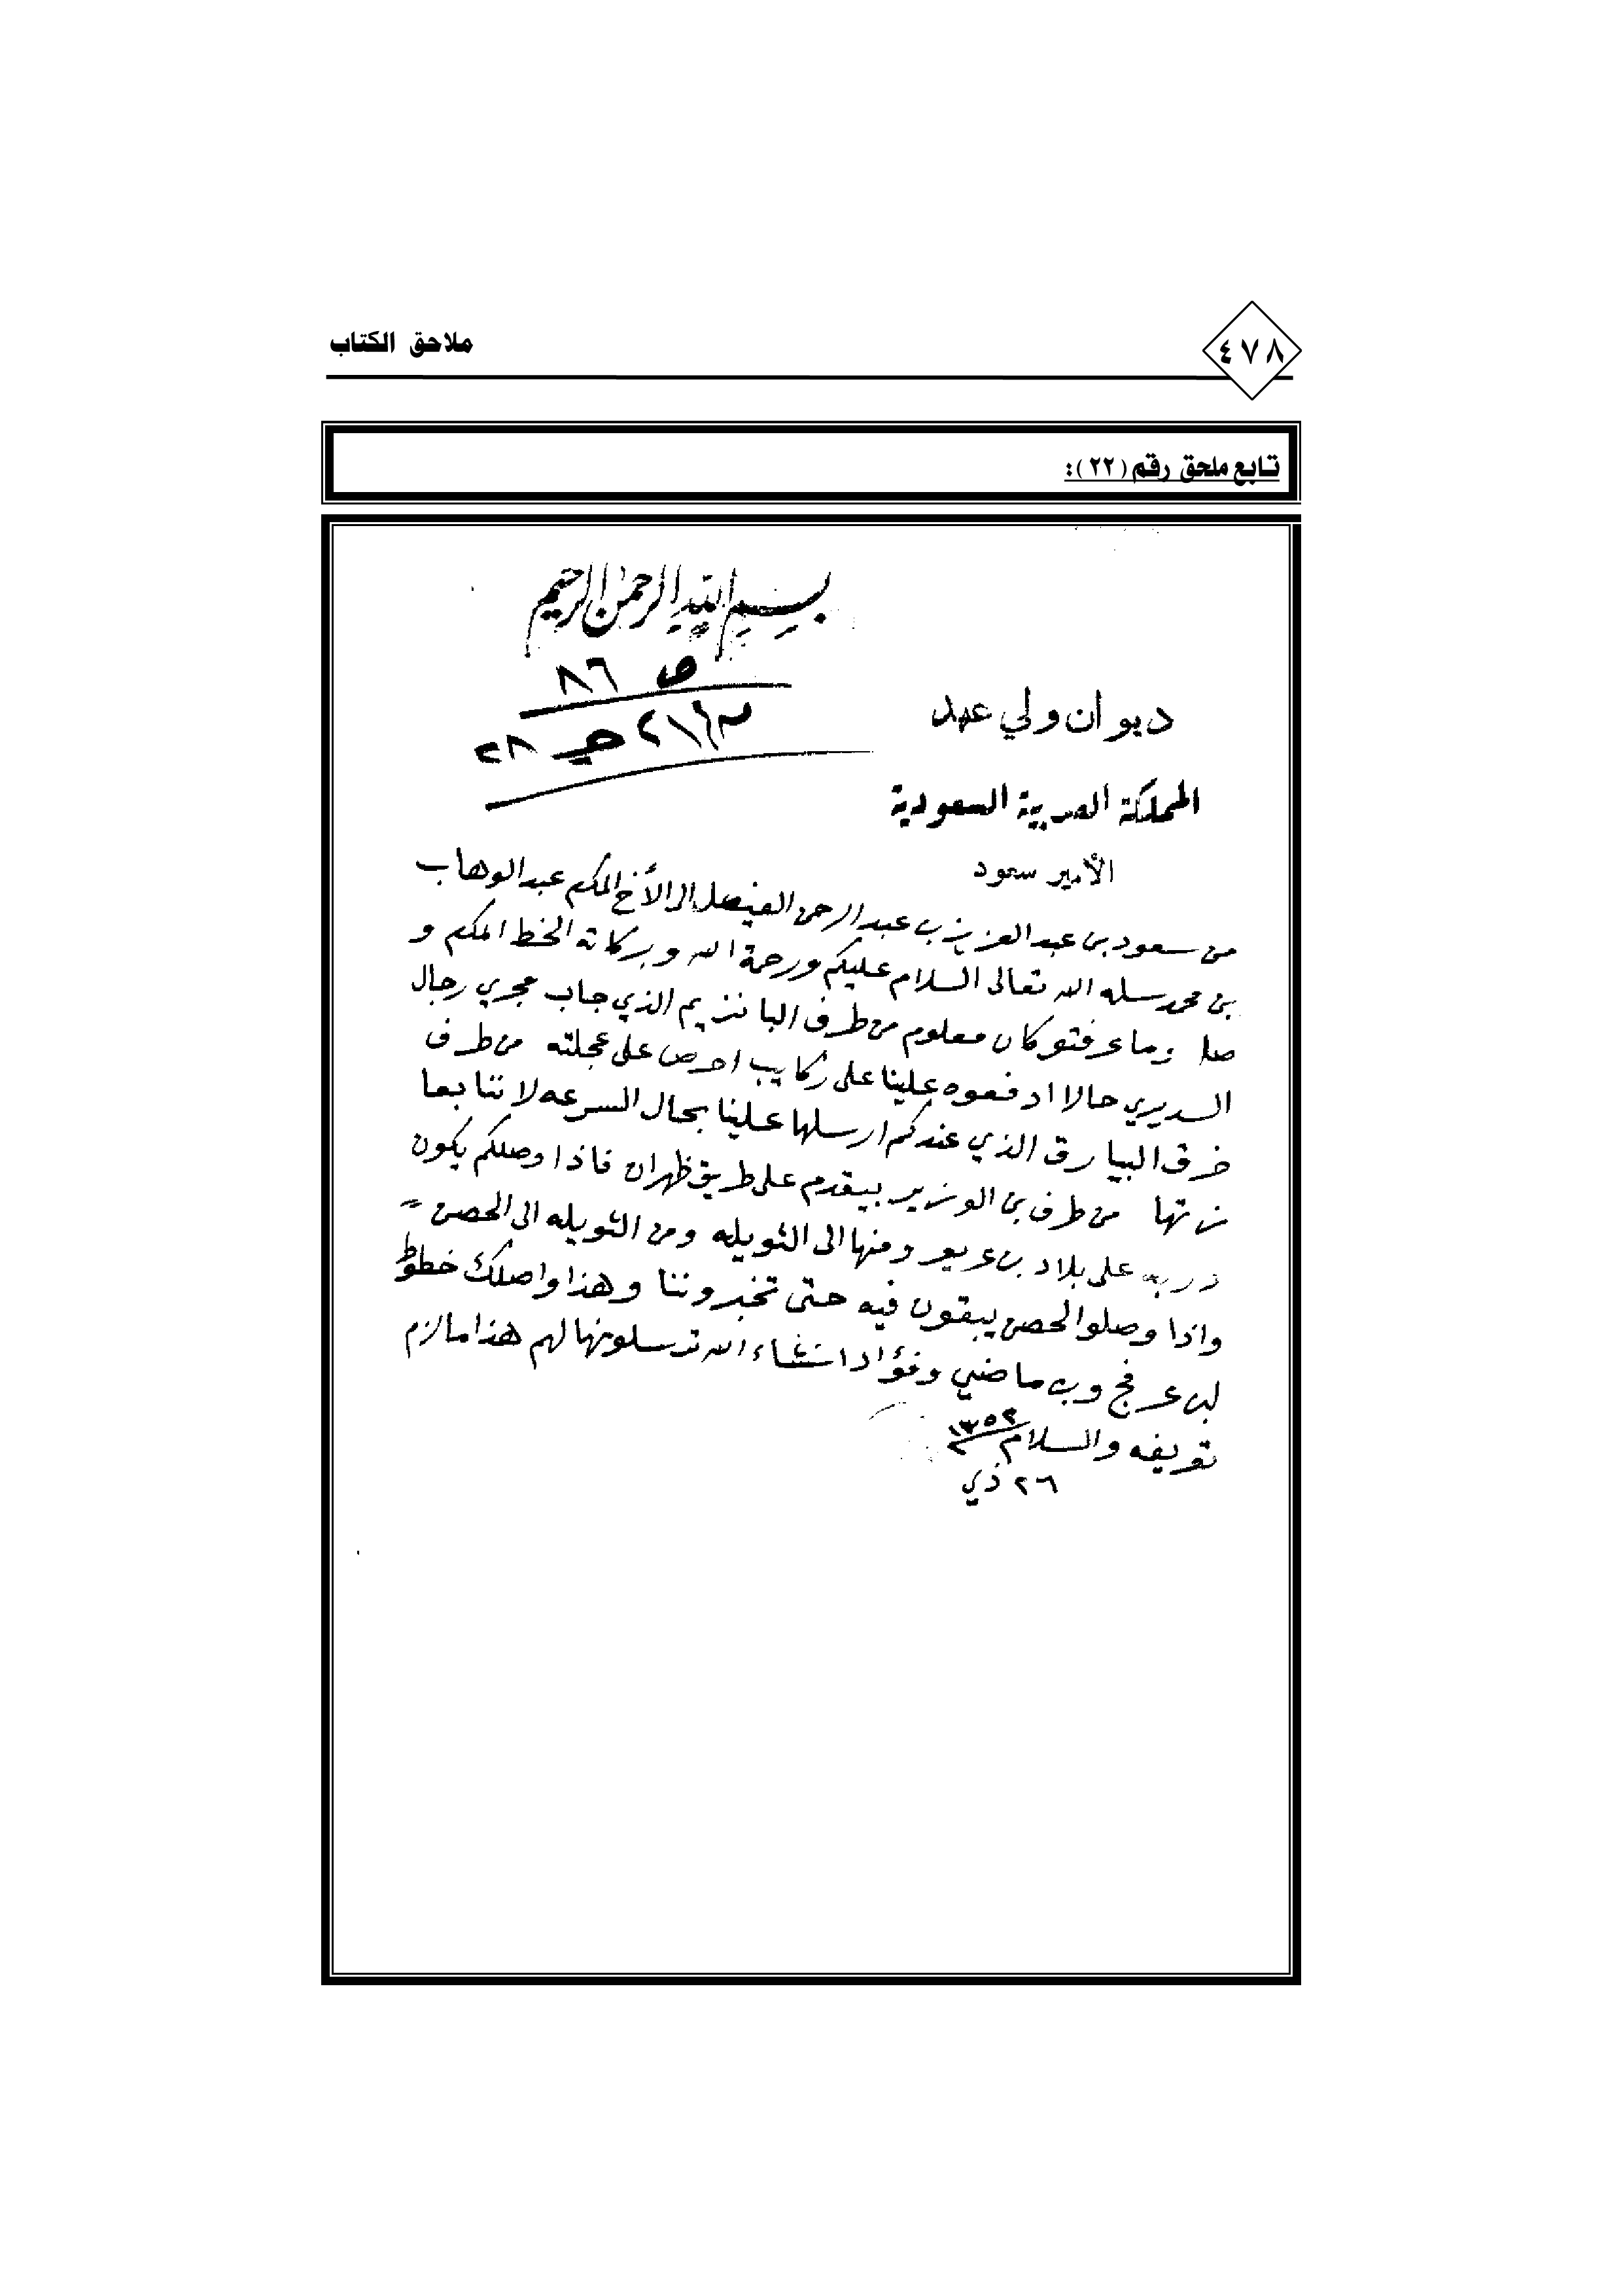 ملاحق الكتاب
٤٧٨
تابع ملحق رقم (٢٢):
بسم الله الرحمن الرحيم
ص ٨٦
ديوان ولي عهد
المملكة العربية السعودية
الأمير سعود
من سعود بن عبد العزيز بن عبد الرحمن الفيصل الى الأخ المكرم عبد الوهاب
بن محمد سلمه الله تعالى السلام عليكم ورحمة الله وبركاته الخط المكرم و
صل وما عرفتو كان معلوم من طرف البا نزيم الذي جاب مجري رجال
السديري حالا ادفعوه علينا على ركايب احرص على عجلته من طرف
خرق البيارق الذي عندكم ارسلها علينا بحال السرعه لاننا بعا
زتها من طرف بن الوزير بيقدم على طريق ظهران فاذا وصلكم يكون
دربه على بلاد بن عريعر ومنها الى الثويله ومن الثويله الى الحصن
واذا وصلوا الحصن يبقون فيه حتى تخبروننا وهذا واصلك خطوط
لبن عرفج وبن ماضي وفؤاد انشاء الله ترسلونها لهم هذا مالزم
تعريفه والسلام ١٣٥٢
٢٦ ذي